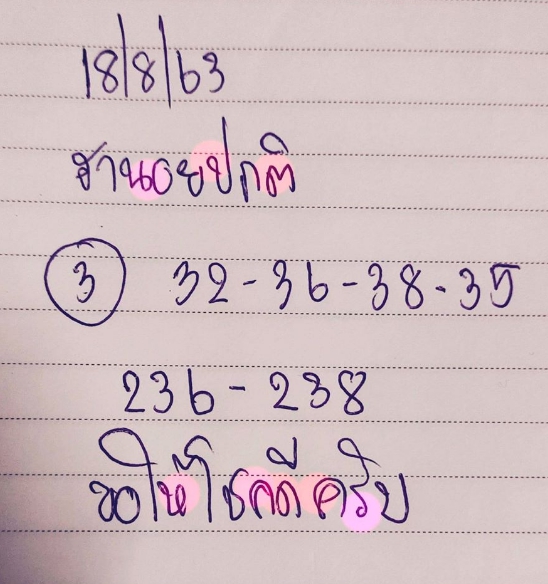 18/8/63
ฮานอยปกติ
3 32-36-38-35
236-238
ขอให้โชคดีครับ